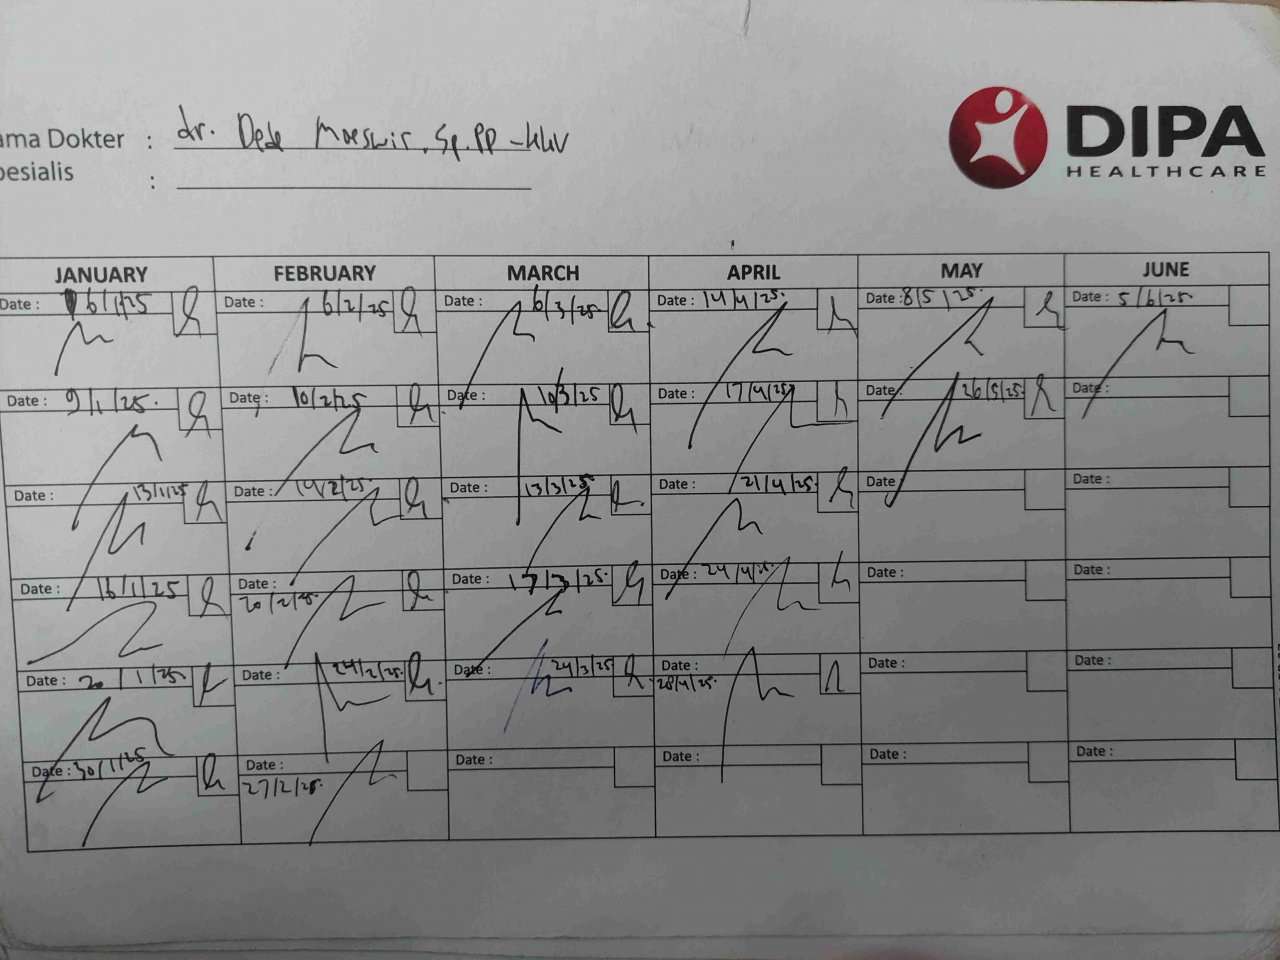 ama Dokter : dr. Dede Moeswir, Sp.PD-KKV
DIPA
HEALTHCARE
pesialis :
JANUARY FEBRUARY MARCH APRIL MAY JUNE
Date : 6/1/25 Date : 6/2/25 Date : 6/3/25 Date : 14/4/25 Date : 8/5/25 Date : 5/6/25
Date : 9/1/25 Date : 10/2/25 Date : 10/3/25 Date : 17/4/25 Date : 26/5/25 Date :
Date : 13/1/25 Date : 14/2/25 Date : 13/3/25 Date : 21/4/25 Date : Date :
Date : 16/1/25 Date : 20/2/25 Date : 17/3/25 Date : 24/4/25 Date : Date :
Date : 20/1/25 Date : 24/2/25 Date : 24/3/25 Date : 28/4/25 Date : Date :
Date : 30/1/25 Date : 27/2/25 Date : Date : Date : Date :